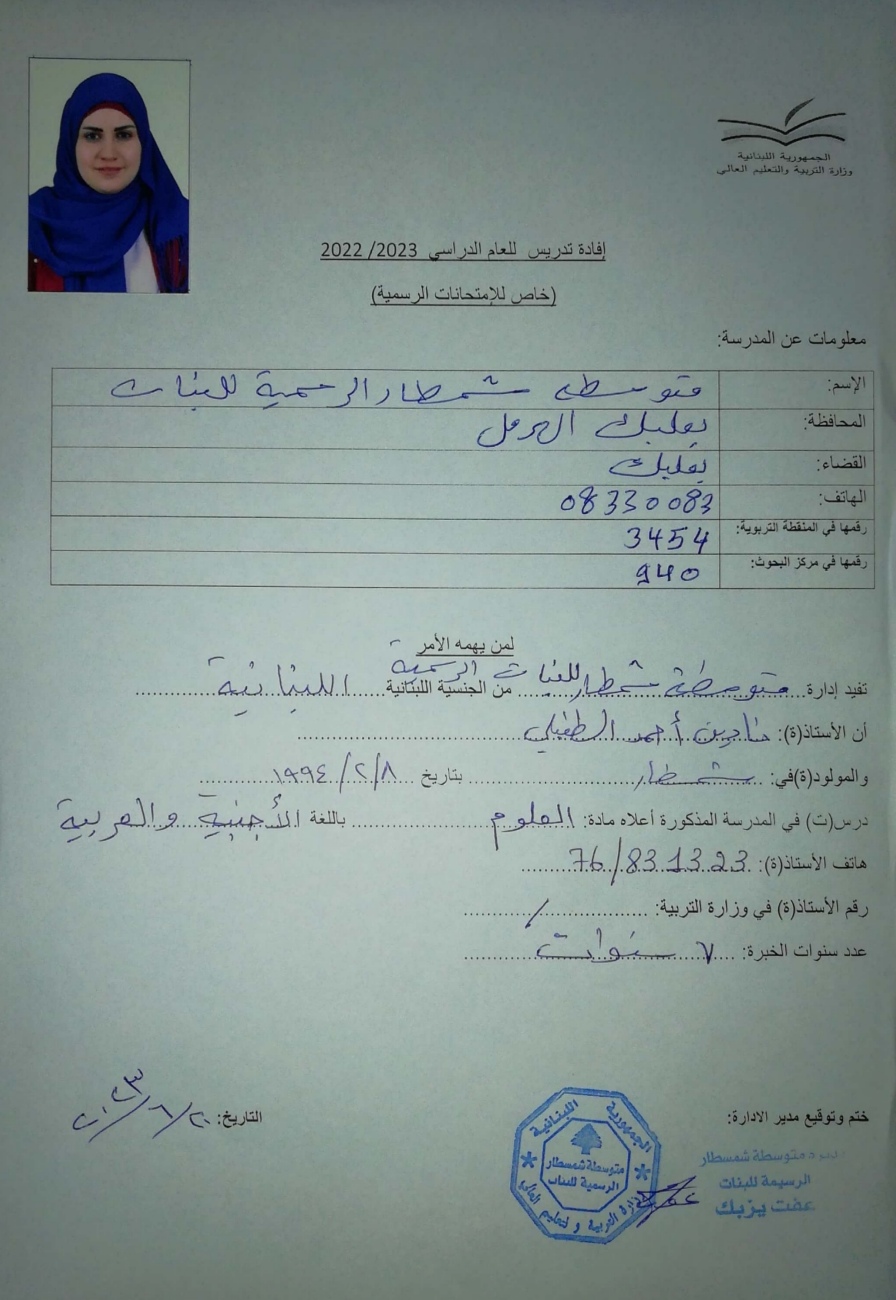 الجمهورية اللبنانية
وزارة التربية والتعليم العالي
إفادة تدريس للعام الدراسي 2023/ 2022
(خاص للإمتحانات الرسمية)
معلومات عن المدرسة:
الإسم: متوسطة شمسطار الرسمية للبنات
المحافظة: بعلبك الهرمل
القضاء: بعلبك
الهاتف: 08330083
رقمها في المنقطة التربوية: 3454
رقمها في مركز البحوث: 940
لمن يهمه الأمر
تفيد إدارة متوسطة شمسطار للبنات الرسمية من الجنسية اللبنانية اللبنانية
أن الأستاذ(ة): نادين أحمد الطفيلي
والمولود(ة)في: شمسطار بتاريخ ١٩٩٤/٢/٨
درس(ت) في المدرسة المذكورة أعلاه مادة: العلوم باللغة الأجنبية والعربية
هاتف الأستاذ(ة): 76/831323
رقم الأستاذ(ة) في وزارة التربية: /
عدد سنوات الخبرة: ٧ سنوات
ختم وتوقيع مدير الادارة:
التاريخ: ٢٠٢٣/٦/٢٠
متوسطة شمسطار
الرسمية للبنات
عفت يزبك
الجمهورية اللبنانية
متوسطة شمسطار
الرسمية للبنات
وزارة التربية والتعليم العالي